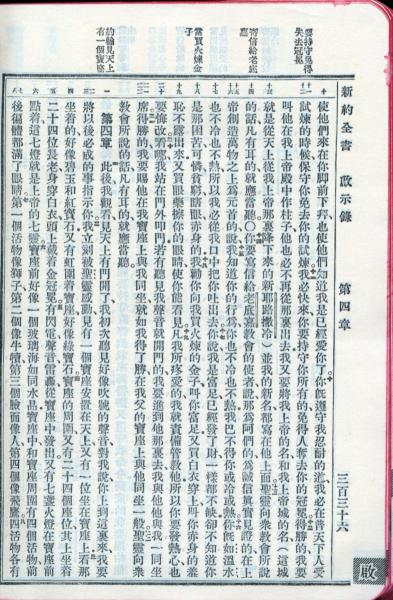 新約全書　啟示錄　第四章　三百三十六
要持守免得失去冠冕
寄信給老底嘉
當買火煉金子
約翰見天上有一個寶座
使他們來在你脚前下拜也使他們知道我是已經愛你了你既遵守我忍耐的道我必在普天下人受
試煉的時候保守你免去你的試煉我必快來你要持守你所有的免得人奪去你的冠冕得勝的我要
叫他在我上帝殿中作柱子他也必不再從那裏出去我又要將我上帝的名和我上帝城的名（這城
就是從天上從我上帝那裏降下來的新耶路撒冷）並我的新名都寫在他上面聖靈向衆教會所說
的話凡有耳的就應當聽〇你要寫信給老底嘉教會的使者說那爲阿們的爲誠信真實見證的在上
帝創造萬物之上爲元首的說我知道你的行爲你也不冷也不熱我巴不得你或冷或熱你既如溫水
也不冷也不熱所以我必從我口中把你吐出去你說我是富足已經發了財一樣都不缺卻不知道你
是那困苦可憐貧窮瞎眼赤身的我勸你向我買火煉的金子叫你富足又買白衣穿上叫你赤身的羞
恥不露出來又買眼藥擦你的眼睛使你能看見凡我所疼愛的我就責備管教他所以你要發熱心也
要悔改看哪我站在門外叩門若有聽見我聲音就開門的我要進到他那裏去我與他他與我一同坐
席得勝的我要賜他在我寶座上與我同坐就如我得了勝在我父的寶座上與他同坐一般聖靈向衆
教會所說的話凡有耳的就應當聽
第四章　此後我觀看見天上有門開了我初次聽見好像吹號的聲音對我說你上到這裏來我要
將以後必成的事指示你我立刻被聖靈感動見有一個寶座安置在天上又有一位坐在寶座上看那
坐着的好像碧玉和紅寶石又有虹圍着寶座好像綠寶石寶座的周圍又有二十四個座位其上坐着
二十四位長老身穿白衣頭上戴着金冠冕有閃電聲音雷轟從寶座中發出又有七盞火燈在寶座前
點着這七燈就是上帝的七靈寶座前好像一個玻璃海如同水晶寶座中和寶座周圍有四個活物前
後徧體都滿了眼睛第一個活物像獅子第二個像牛犢第三個臉面像人第四個像飛鷹四活物各有
啟